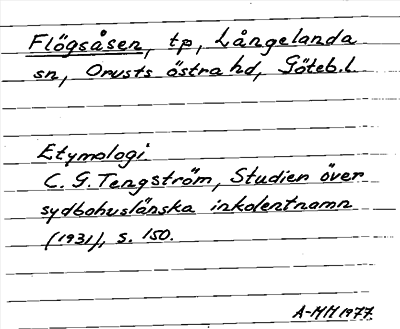 Flögsåsen, tp, Långelanda
sn, Orusts östra hd, Göteb.l.
Etymologi
C. G. Tengström, Studier över
sydbohuslänska inkolentnamn
(1931), s. 150.
A-MM 1977.